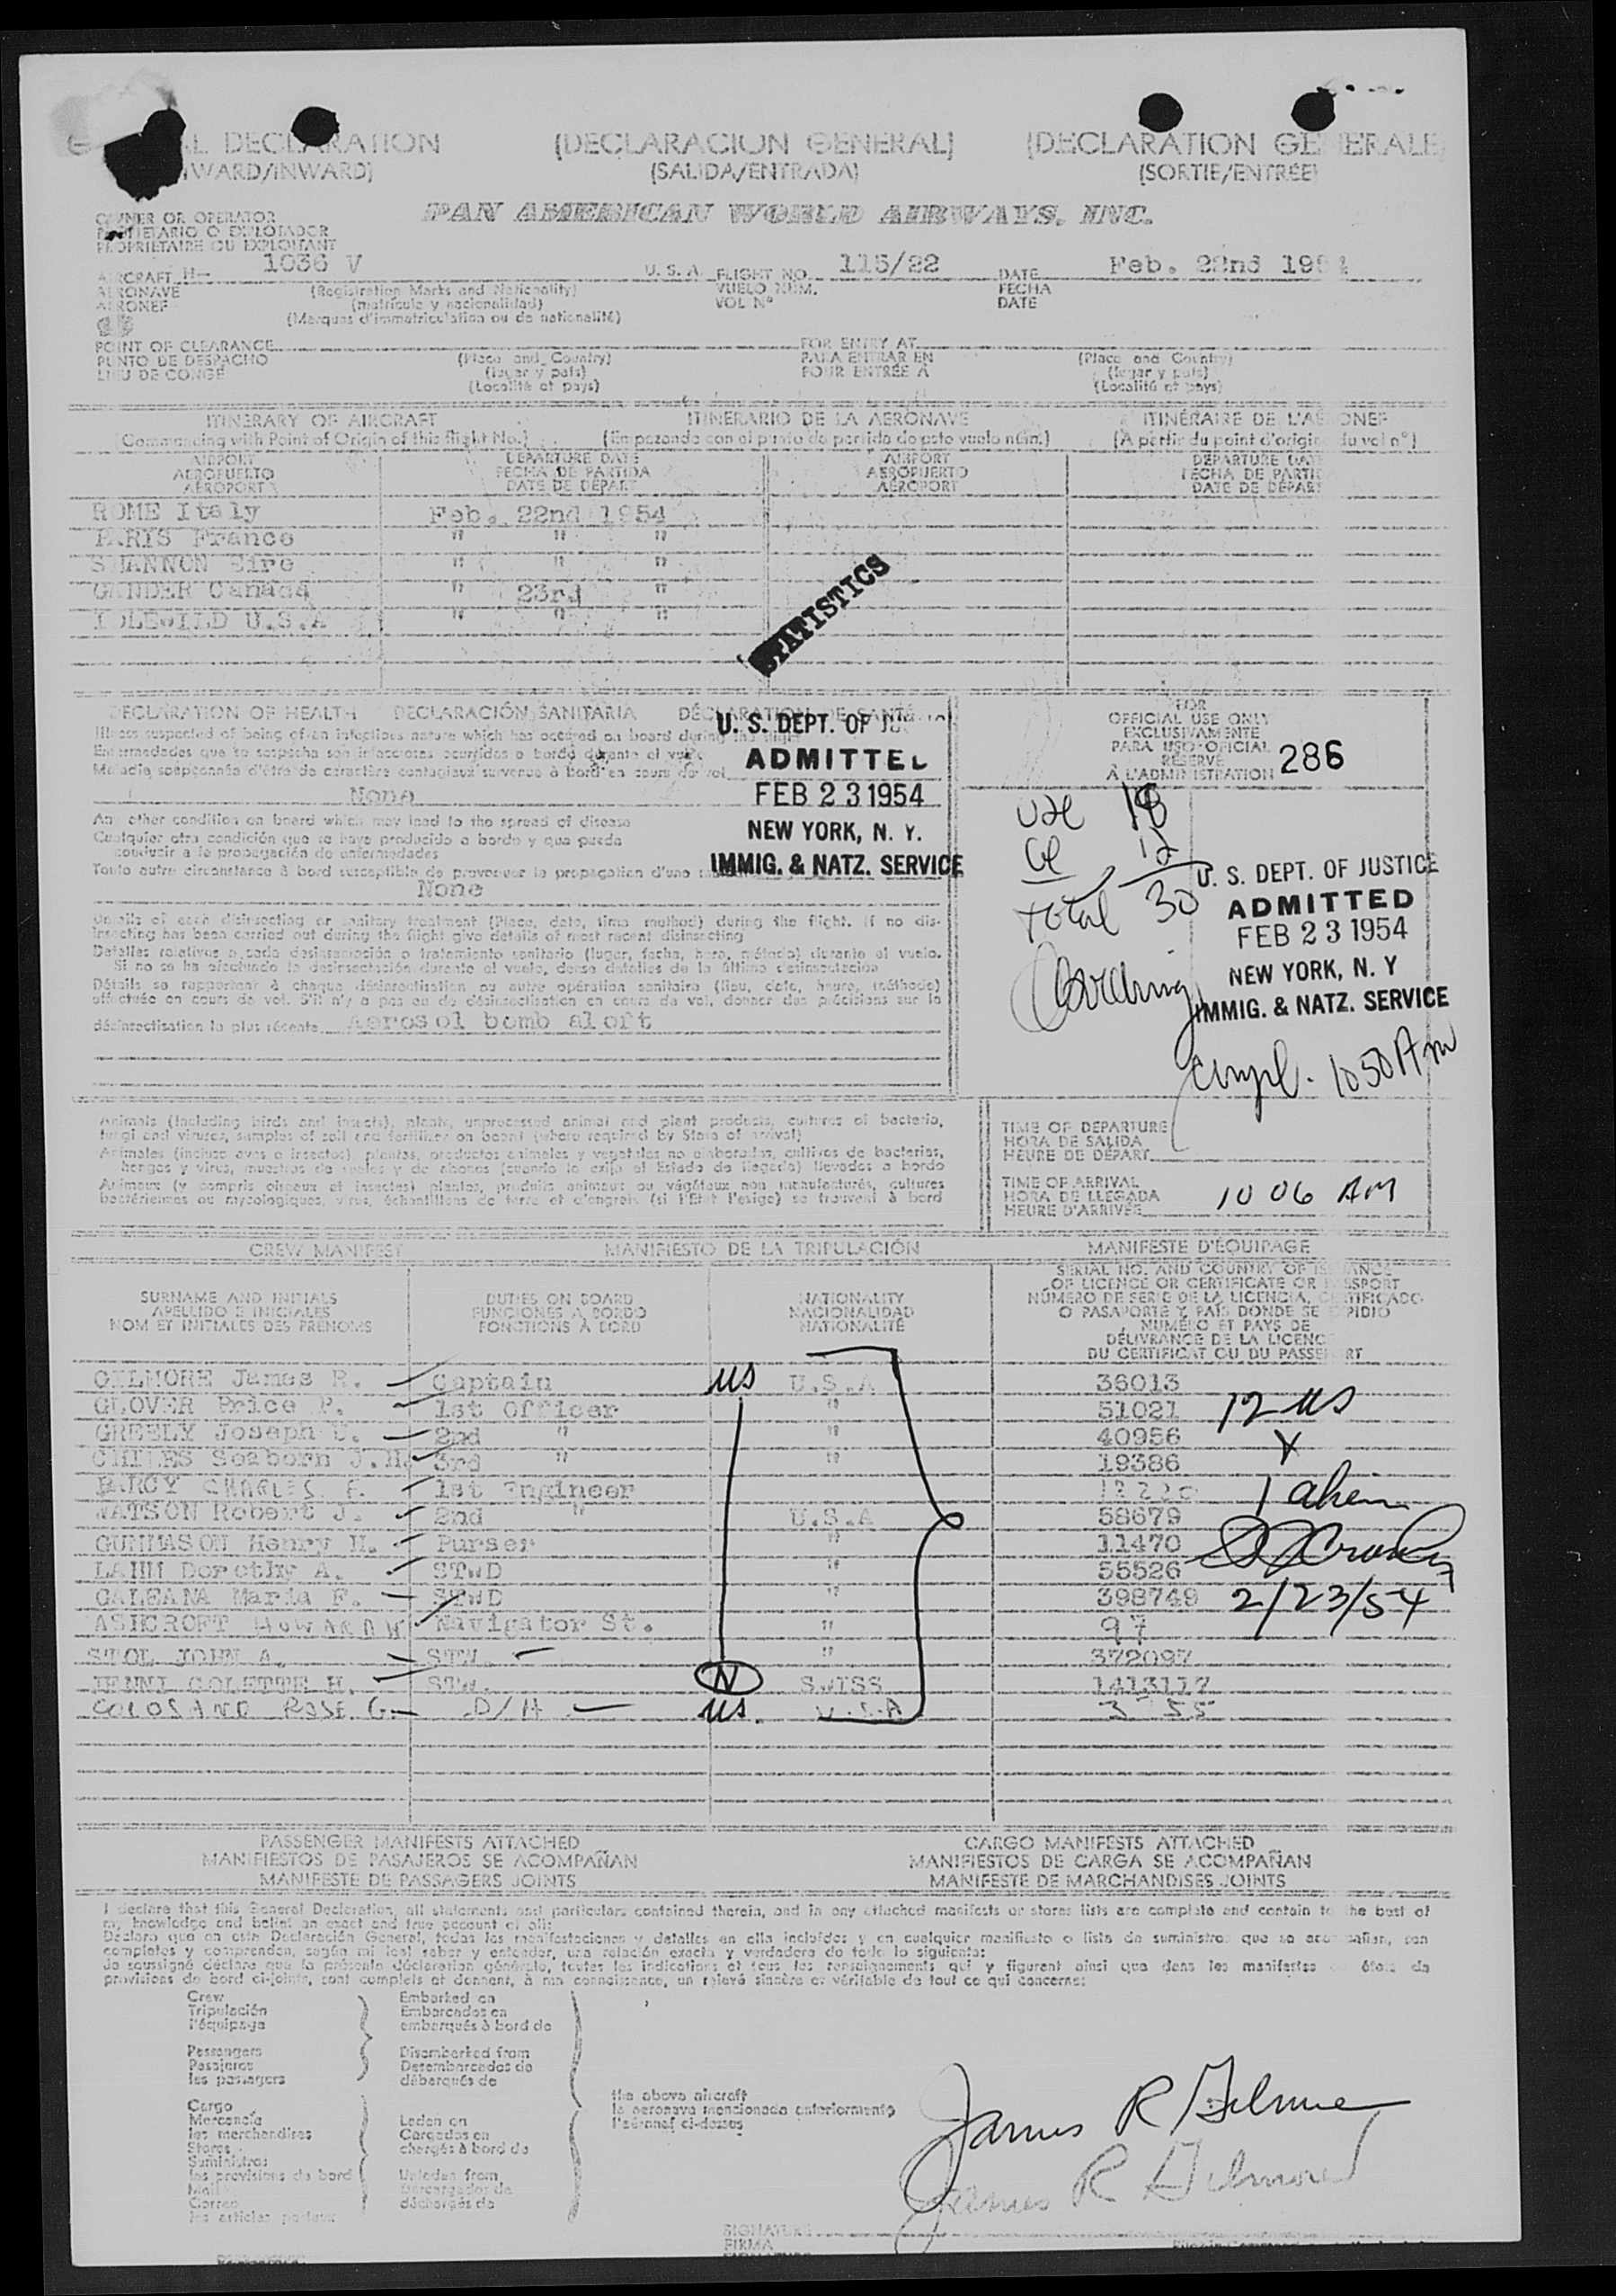 DECLARATION (DECLARACION GENERAL) (DECLARATION GENERALE)
(SALIDA/ENTRADA) (SORTIE/ENTRÉE)
OWNER OR OPERATOR
PROPIETARIO O EXPLOTADOR
PROPRIETAIRE OU EXPLOITANT
PAN AMERICAN WORLD AIRWAYS, INC.
AIRCRAFT N- 1036 V U. S. A. FLIGHT NO. 115/22 DATE Feb. 22nd
AERONAVE (Registration Marks and Nationality) VUELO NUM. FECHA
AERONEF (matrícula y nacionalidad) VOL Nº DATE
(Marques d'immatriculation ou de nationalité)
POINT OF CLEARANCE FOR ENTRY AT
PUNTO DE DESPACHO (Place and Country) PARA ENTRAR EN (Place and Country)
LIEU DE CONGÉ (lugar y país) POUR ENTRÉE A (lugar y país)
(Localité et pays) (Localité et pays)
ITINERARY OF AIRCRAFT ITINERARIO DE LA AERONAVE ITINÉRAIRE DE L'AÉRONEF
(Commencing with Point of Origin of this flight No.) (Empezando con el punto de partida de este vuelo núm.) (A partir du point d'origine du vol nº)
AIRPORT DEPARTURE DATE AIRPORT DEPARTURE DATE
AEROPUERTO FECHA DE PARTIDA AEROPUERTO FECHA DE PARTIDA
AÉROPORT DATE DE DÉPART AÉROPORT DATE DE DÉPART
ROME Italy Feb. 22nd 1954
PARIS France " " "
SHANNON Eire " " "
GANDER Canada " 23rd "
IDLEWILD U.S.A " " "
STATISTICS
DECLARATION OF HEALTH DECLARACIÓN SANITARIA DÉCLARATION DE SANTÉ
Illness suspected of being of an infectious nature which has occured on board during the flight
Enfermedades que se sospecha son infecciosas ocurridas a bordo durante el vuelo
Maladie soupçonnée d'être de caractère contagieux survenue à bord en cours de vol
None
Any other condition on board which may lead to the spread of disease
Cualquier otra condición que se haya producido a bordo y que pueda
conducir a la propagación de enfermedades
Toute autre circonstance à bord susceptible de provoquer la propagation d'une
None
U. S. DEPT. OF
ADMITTED
FEB 23 1954
NEW YORK, N. Y.
IMMIG. & NATZ. SERVICE
FOR
OFFICIAL USE ONLY
EXCLUSIVAMENTE
PARA USO OFICIAL
RÉSERVÉ
À L'ADMINISTRATION 286
18
12
Total 30
U. S. DEPT. OF JUSTICE
ADMITTED
FEB 23 1954
NEW YORK, N. Y
IMMIG. & NATZ. SERVICE
Boarding
compl. 1050 Am
Details of each disinsecting or sanitary treatment (Place, date, time method) during the flight. If no dis-
insecting has been carried out during the flight give details of most recent disinsecting
Detalles relativos a cada desinsectación o tratamiento sanitario (lugar, fecha, hora, método) durante el vuelo.
Si no se ha efectuado la desinsectación durante el vuelo, dense detalles de la última desinsectación
Détails se rapportant à chaque désinsectisation ou autre opération sanitaire (lieu, date, heure, méthode)
effectuée en cours de vol. S'il n'y a pas eu de désinsectisation en cours de vol, donner des précisions sur la
désinsectisation la plus récente Aerosol bomb aloft
Animals (including birds and insects), plants, unprocessed animal and plant products, cultures of bacteria,
fungi and viruses, samples of soil and fertilizer on board (where required by State of arrival)
Animales (incluso aves e insectos), plantas, productos animales y vegetales no elaborados, cultivos de bacterias,
hongos y virus, muestras de suelos y de abonos (cuando lo exija el Estado de llegada) llevados a bordo
Animaux (y compris oiseaux et insectes) plantes, produits animaux ou végétaux non manufacturés, cultures
bactériennes ou mycologiques, virus, échantillons de terre et d'engrais (si l'Etat l'exige) se trouvant à bord
TIME OF DEPARTURE
HORA DE SALIDA
HEURE DE DÉPART
TIME OF ARRIVAL
HORA DE LLEGADA 10 06 AM
HEURE D'ARRIVÉE
CREW MANIFEST MANIFIESTO DE LA TRIPULACIÓN MANIFESTE D'ÉQUIPAGE
SURNAME AND INITIALS
APELLIDO E INICIALES
NOM ET INITIALES DES PRENOMS
DUTIES ON BOARD
FUNCIONES A BORDO
FONCTIONS À BORD
NATIONALITY
NACIONALIDAD
NATIONALITÉ
SERIAL NO. AND COUNTRY OF ISSUANCE
OF LICENCE OR CERTIFICATE OR PASSPORT
NÚMERO DE SERIE DE LA LICENCIA, CERTIFICADO
O PASAPORTE Y PAÍS DONDE SE EXPIDIO
NUMÉRO ET PAYS DE
DÉLIVRANCE DE LA LICENCE
DU CERTIFICAT OU DU PASSEPORT
GILMORE James R. Captain US U.S.A 36013
GLOVER Price P. 1st Officer " 51021 12 US
GREELY Joseph U. 2nd " " 40956 X
CHILES Seaborn J.H. 3rd " " 19386
DARCY CHARLES F. 1st Engineer 1 alien
WATSON Robert J. 2nd " U.S.A 58679
GUNNASON Henry H. Purser " 11470
LAHH Dorothy A. STWD " 55526
GALEANA Maria F. STWD " 398749 2/23/54
ASHCROFT HOWARD W Navigator St. " 97
STOL JOHN A. STW. " 372097
JENNI COLETTE H. STW. N SWISS 1413117
COLOSANO ROSE G. D/H US. U.S.A
PASSENGER MANIFESTS ATTACHED CARGO MANIFESTS ATTACHED
MANIFIESTOS DE PASAJEROS SE ACOMPAÑAN MANIFIESTOS DE CARGA SE ACOMPAÑAN
MANIFESTE DE PASSAGERS JOINTS MANIFESTE DE MARCHANDISES JOINTS
I declare that this General Declaration, all statements and particulars contained therein, and in any attached manifests or stores lists are complete and contain to the best of
my knowledge and belief an exact and true account of all:
Declaro que en esta Declaración General, todas las manifestaciones y detalles en ella incluídos y en cualquier manifiesto o lista de suministros que se acompañan, son
completos y comprenden, según mi leal saber y entender, una relación exacta y verdadera de todo lo siguiente:
Je soussigné déclare que la présente déclaration générale, toutes les indications et tous les renseignements qui y figurent ainsi que dans les manifestes états de
provisions de bord ci-joints, sont complets et donnent, à ma connaissance, un relevé sincère et véritable de tout ce qui concerne:
Crew Embarked on
Tripulación Embarcados en
l'équipage embarqués à bord de
Passengers Disembarked from
Pasajeros Desembarcados de
les passagers débarqués de
the above aircraft
la aeronave mencionada anteriormente
l'aéronef ci-dessus
Cargo
Mercancía Laden on
les marchandises Cargados en
Stores chargés à bord de
Suministros
les provisions de bord Unladen from
Mail Descargados de
Correo déchargés de
les articles postaux
James R Gilmore
James R Gilmore
SIGNATURE
FIRMA